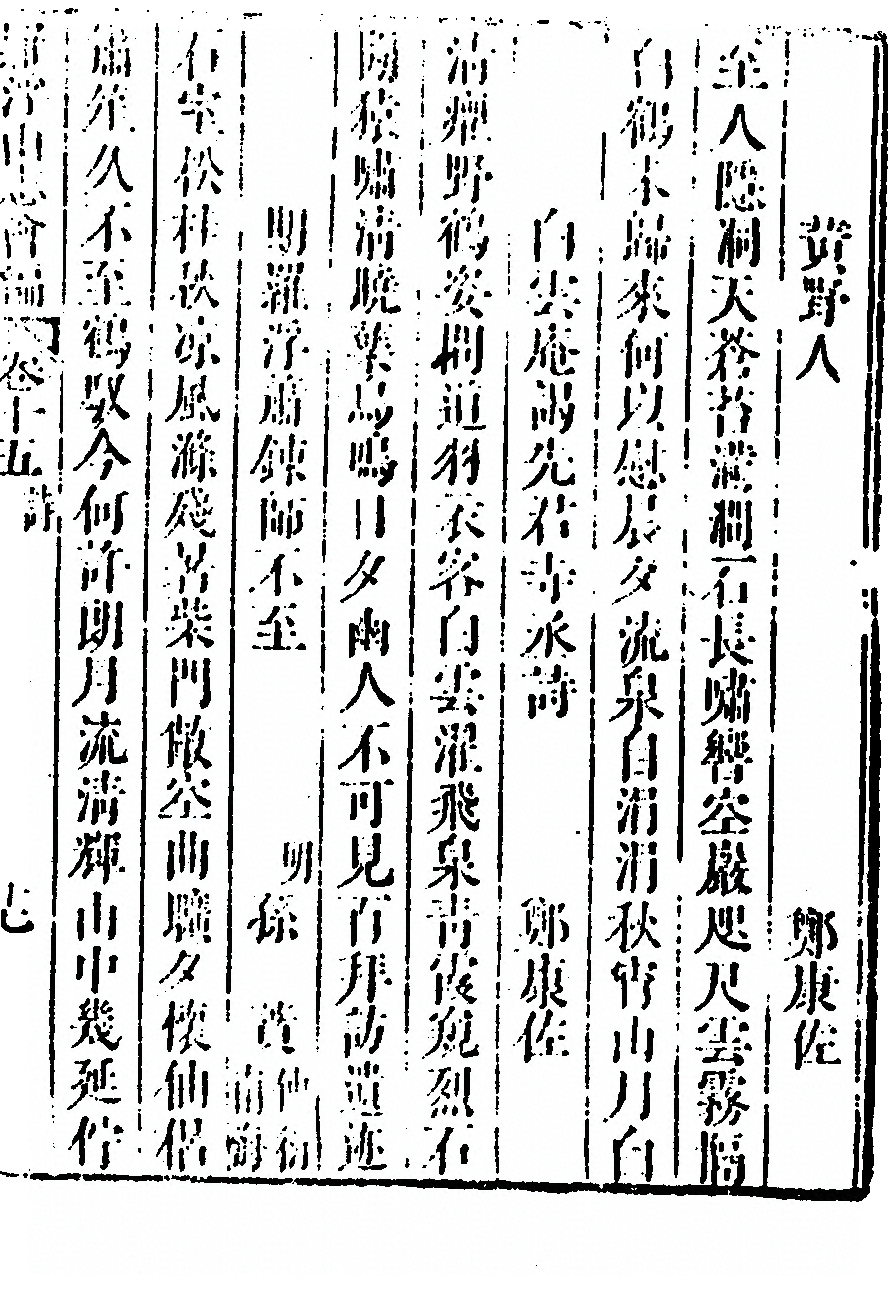 黃野人 鄭康佐
至人隱洞天蒼苔灑澗石長嘯響空巖咫尺雲霧隔
白鶴不歸來何以慰晨夕流泉自涓涓秋宵山月白
白雲庵謁先君寺丞詩 鄭康佐
沾癯野鶴姿棡追羽衣客白雲濯飛泉青霞爛烈石
開猿嘯清曉葉鳥鳴日夕幽人不可見百拜訪遺迹
明羅浮蕭鍊師不至 明孫蕡仲衍南海
石室松桂秋凉風滌殘暑柴門敞空曲曠夕懷仙侶
簫笙久不至鶴馭今何許朗月流清輝山中幾延佇
羅浮山志會編 卷十五 詩 七